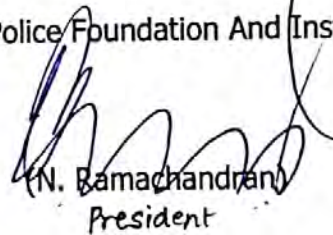 Police Foundation And Ins
(N. Ramachandran)
President